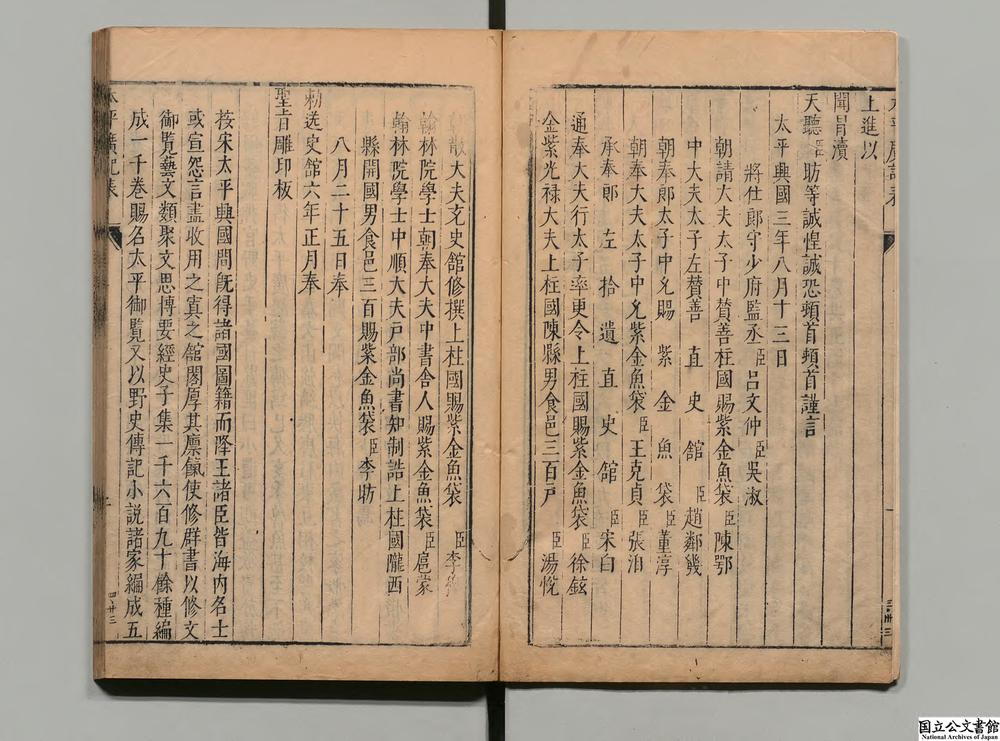 上進以
聞冒瀆
天聽臣昉等誠惶誠恐頓首頓首謹言
太平興國三年八月十三日
將仕郎守少府監丞臣呂文仲臣吳淑
朝請大夫太子中贊善柱國賜紫金魚袋臣陳鄂
中大夫太子左贊善直史館臣趙鄰幾
朝奉郎太子中允賜紫金魚袋臣董淳
朝奉大夫太子中允紫金魚袋臣王克貞臣張洎
承奉郎左拾遺直史館臣宋白
通奉大夫行太子率更令上柱國賜紫金魚袋臣徐鉉
金紫光祿大夫上柱國陳縣男食邑三百戶臣湯悅
散大夫充史館修撰上柱國賜紫金魚袋臣李
翰林院學士朝奉大夫中書舍人賜紫金魚袋臣扈蒙
翰林院學士中順大夫戶部尚書知制誥上柱國隴西
縣開國男食邑三百賜紫金魚袋臣李昉
八月二十五日奉
勅送史館六年正月奉
聖旨雕印板
按宋太平興國間旣得諸國圖籍而降王諸臣皆海內名士
或宣怨言盡收用之寘之舘閣厚其廩餼使修群書以修文
御覽藝文類聚文思博要經史子集一千六百九十餘種編
成一千卷賜名太平御覽又以野史傳記小說諸家編成五
太平廣記表
国立公文書館
National Archives of Japan